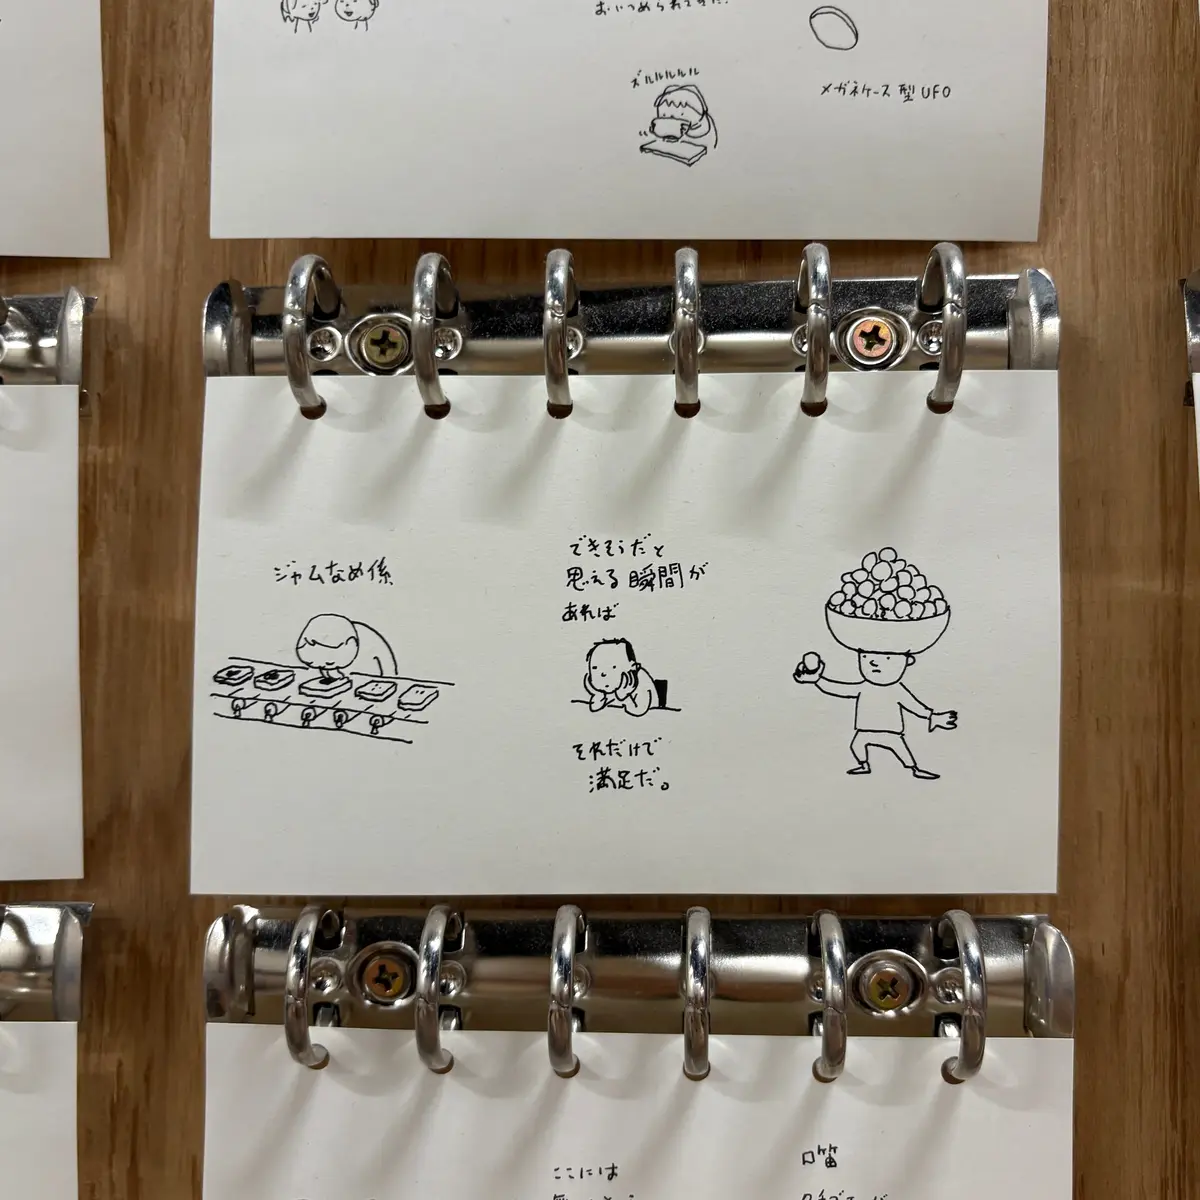 ズルルルルル
メガネケース型UFO
ジャムなめ係
できそうだと
思える瞬間が
あれば
それだけで
満足だ。
ここには
口笛